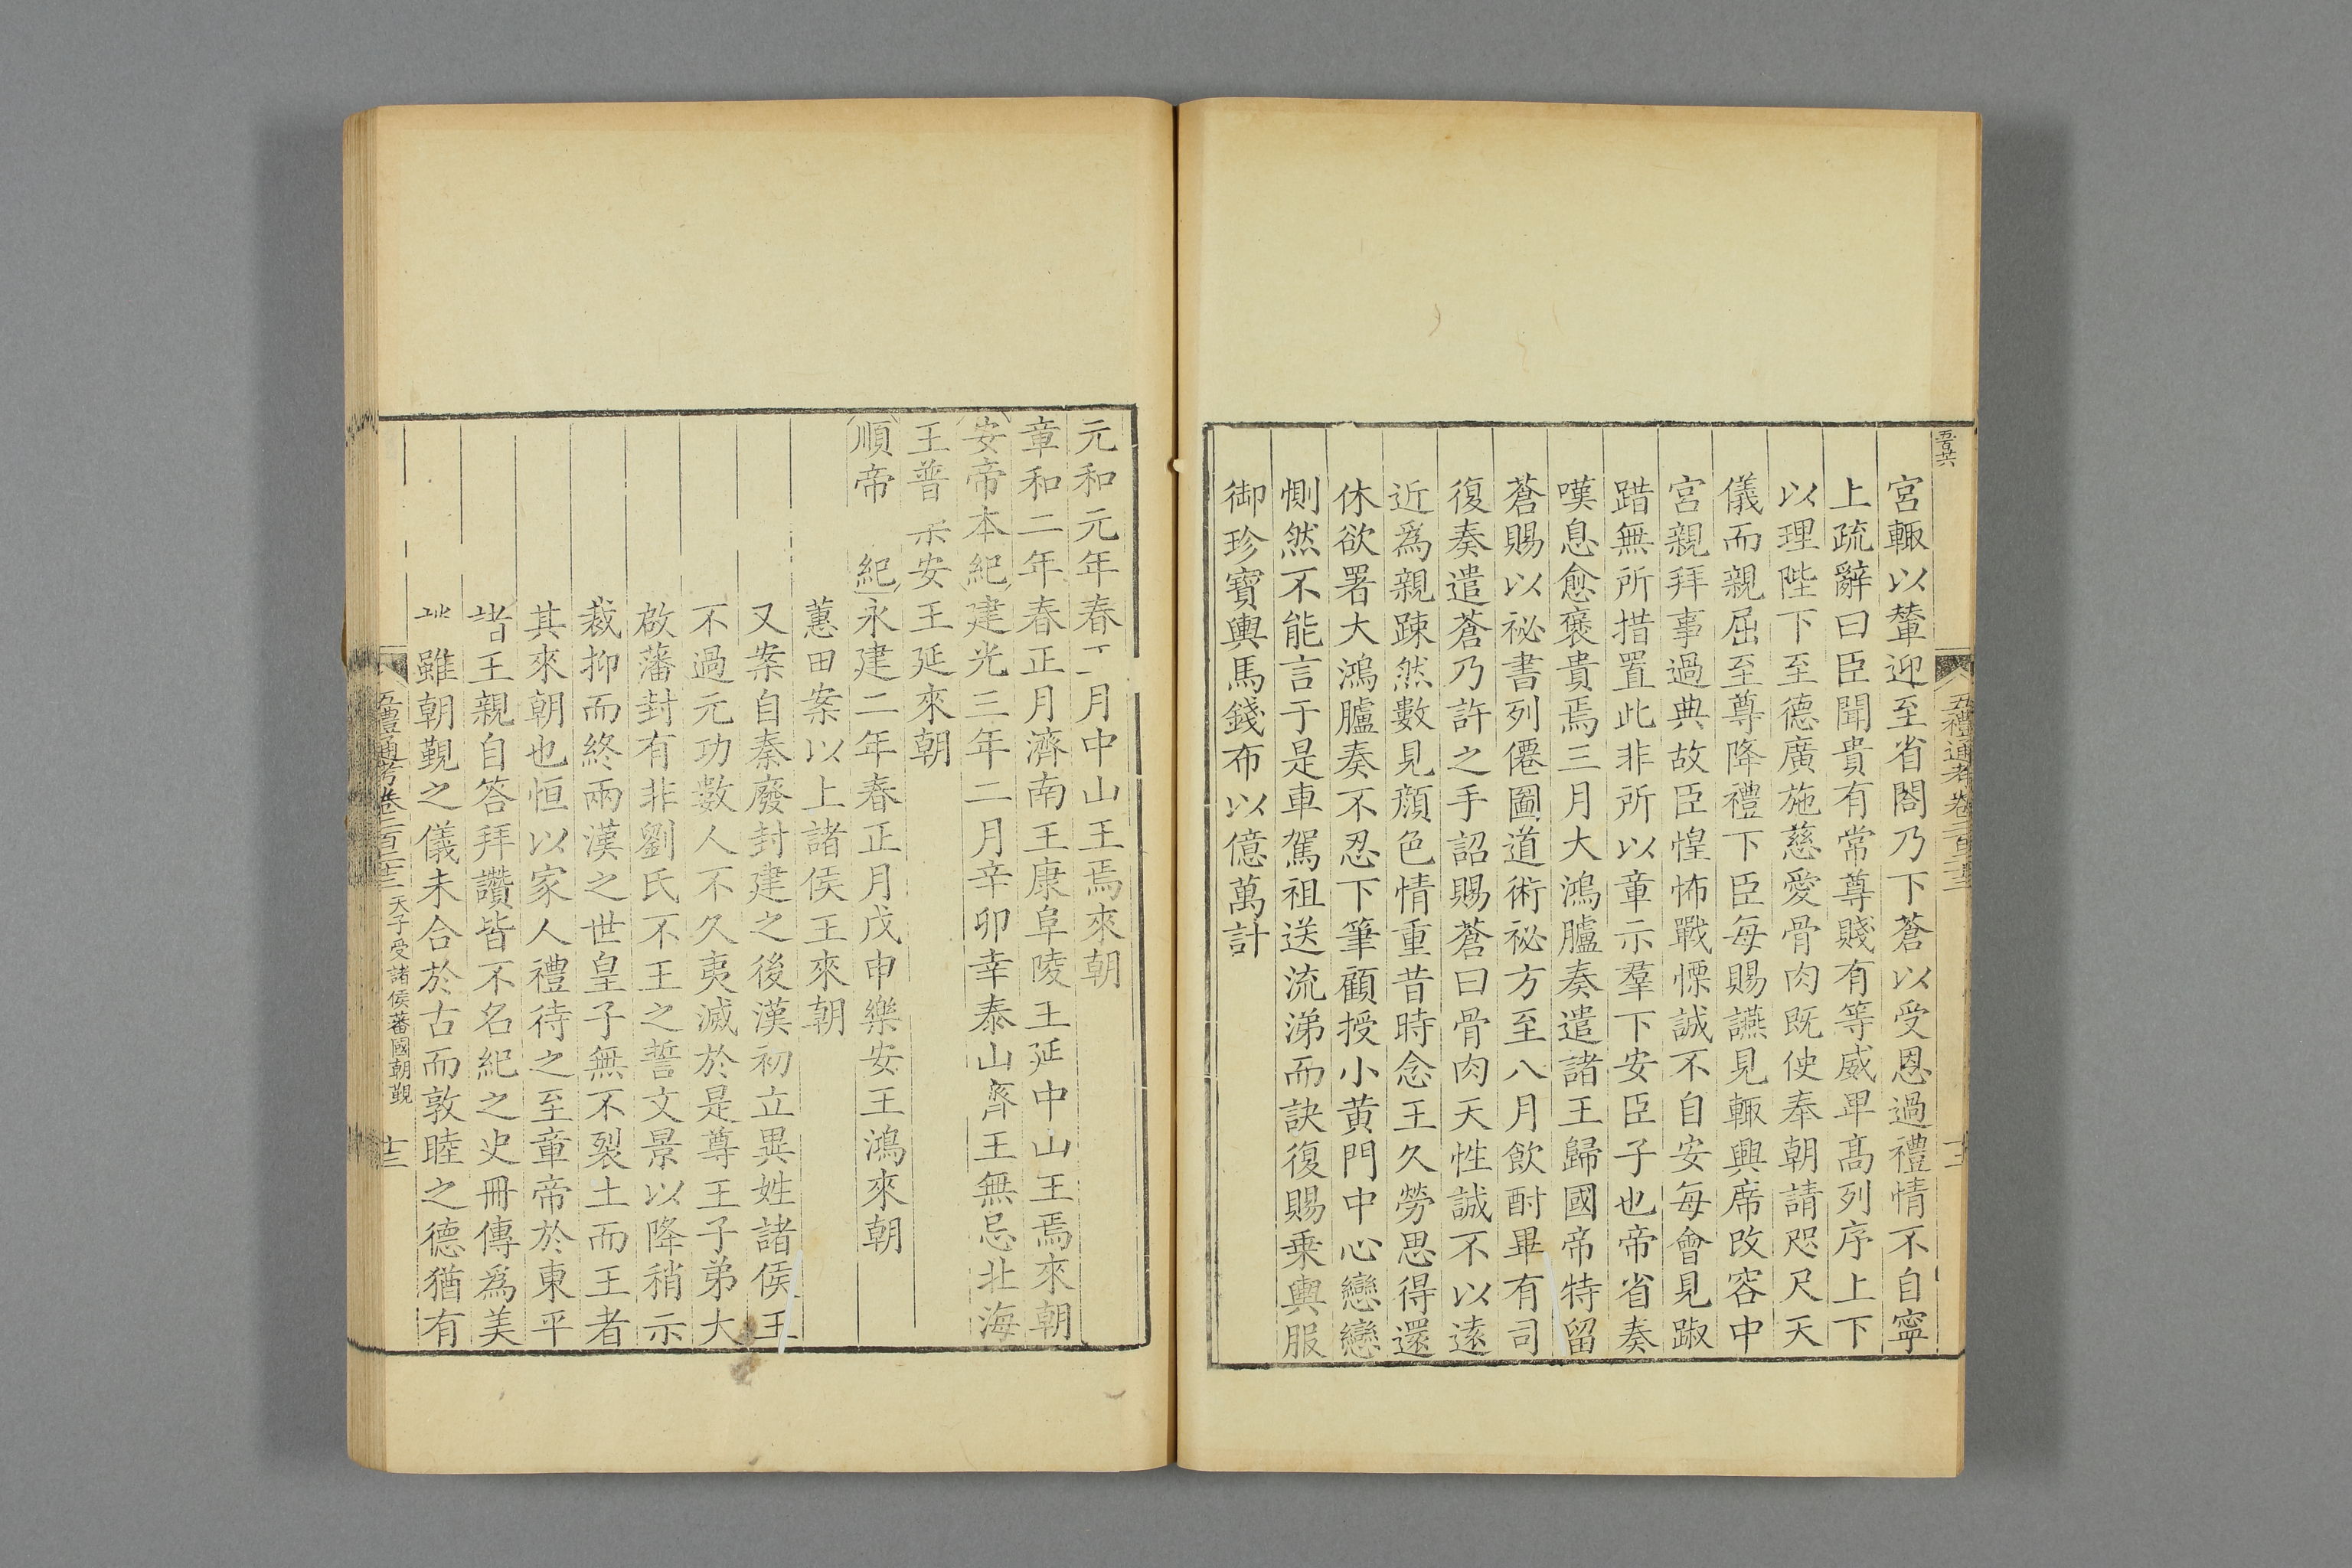 五禮通考卷二百二十二
宮輙以輦迎至省閤乃下蒼以受恩過禮情不自寧
上疏辭曰臣聞貴有常尊賤有等威𤰞髙列序上下
以理陛下至德廣施慈愛骨肉既使奉朝請咫尺天
儀而親屈至尊降禮下臣每賜讌見輙興席改容中
宮親拜事過典故臣惶怖戰慄誠不自安每會見踧
踖無所措置此非所以章示羣下安臣子也帝省奏
嘆息愈褒貴焉三月大鴻臚奏遣諸王歸國帝特留
蒼賜以祕書列僊圖道術祕方至八月飲酎畢有司
復奏遣蒼乃許之手詔賜蒼曰骨肉天性誠不以逺
近爲親踈然數見顔色情重昔時念王久勞思得還
休欲署大鴻臚奏不忍下筆顧授小黄門中心戀戀
惻然不能言于是車駕祖送流涕而訣復賜乗輿服
御珍寶輿馬錢布以億萬計
元和元年春 月中山王焉來朝
章和二年春正月濟南王康阜陵王延中山王焉來朝
安帝本紀建光三年二月辛卯幸泰山齊王無忌北海
王普 安王延來朝
順帝 紀永建二年春正月戊申樂安王鴻來朝
蕙田案以上諸侯王來朝
又案自秦廢封建之後漢初立異姓諸侯王
不過元功數人不久夷滅於是尊王子弟大
啟藩封有非劉氏不王之誓文景以降稍示
裁抑而終兩漢之世皇子無不裂土而王者
其來朝也恒以家人禮待之至章帝於東平
諸王親自答拜讚皆不名紀之史冊傳爲美
雖朝覲之儀未合於古而敦睦之德猶有
五禮通考卷二百二十二 天子受諸侯蕃國朝覲 十三